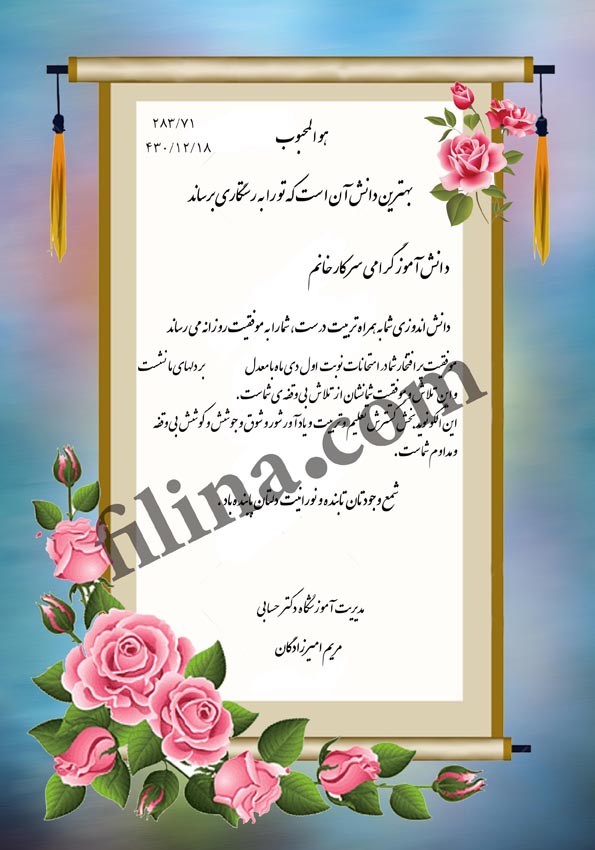 ۲۸۳/۷۱
هو المحبوب
۴۳۰/۱۲/۱۸
بهترین دانش آن است که تو را به رستگاری برساند
دانش آموز گرامی سرکار خانم
دانش اندوزی شما به همراه تربیت درست، شما را به موفقیت روزانه می رساند
موفقیت پر افتخار شما در امتحانات نوبت اول دی ماه با معدل بر دلهای ما نشست
و این تلاش و موفقیت شما نشان از تلاش بی وقفه ی شماست.
این الگو نوید بخش گسترش تعلیم و تربیت و یادآور شور و شوق و جوشش و کوشش بی وقفه
و مداوم شماست.
شمع وجودتان تابنده و نورانیت دلتان پاینده باد.
مدیریت آموزشگاه دکتر حسابی
مریم امیرزادگان
filina.com